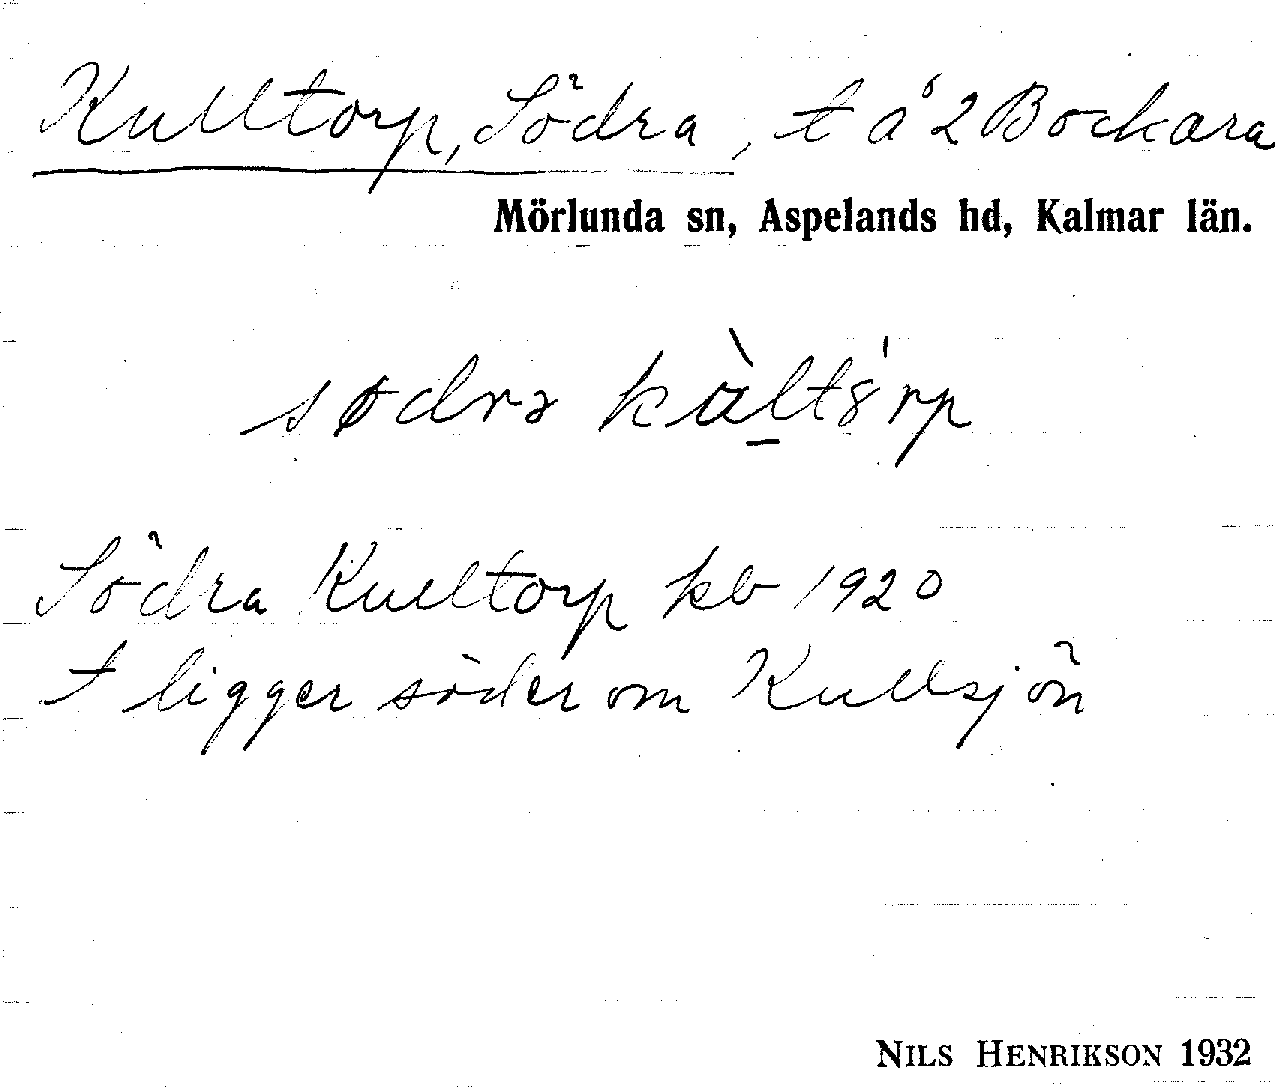 Kulltorp, Södra, t å 2 Bockara
Mörlunda sn, Aspelands hd, Kalmar län.
södra
Södra Kulltorp kb 1920
t ligger söder om Kullsjön
NILS HENRIKSON 1932